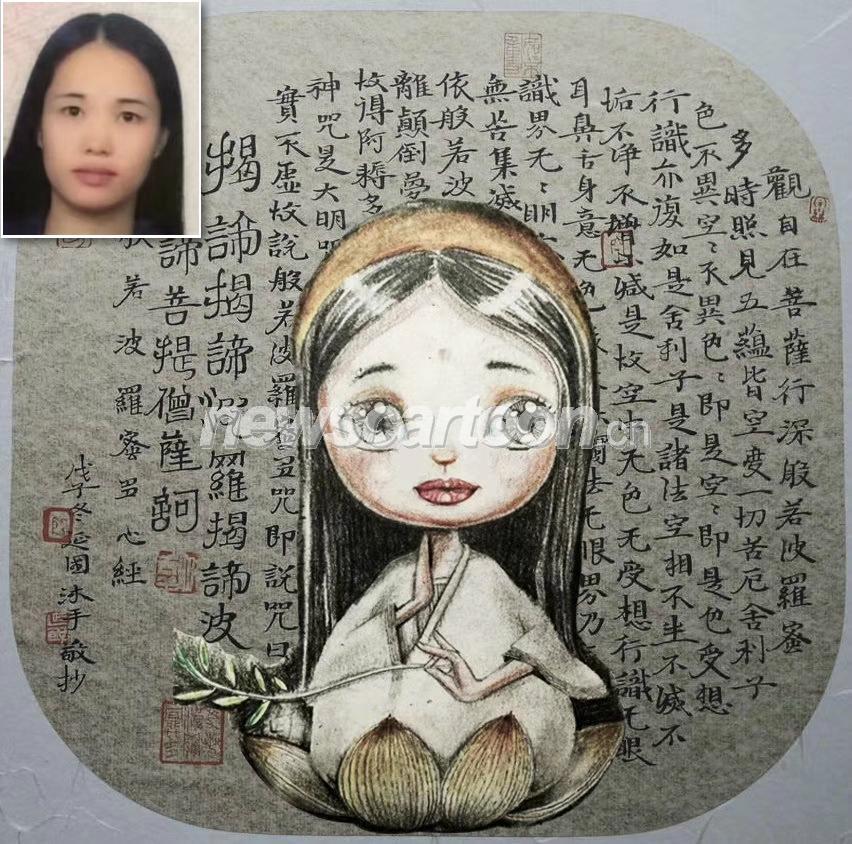 觀自在菩薩行深般若波羅蜜
多時照見五蘊皆空度一切苦厄舍利子
色不異空々不異色々即是空々即是色受想
行識亦復如是舍利子是諸法空相不生不滅不
垢不净不增不減是故空中无色无受想行識无眼
耳鼻舌身意无色 觸法无眼界乃
識界无々明
無苦集滅
依般若波
離顛倒夢
故得阿耨多
神咒是大明咒
實不虛故說般若波羅蜜多咒即說咒曰
揭諦揭諦波羅揭諦波
諦菩提僧薩訶
般若波羅蜜多心經
戊子冬 国沐手敬抄
newscartoon.cn